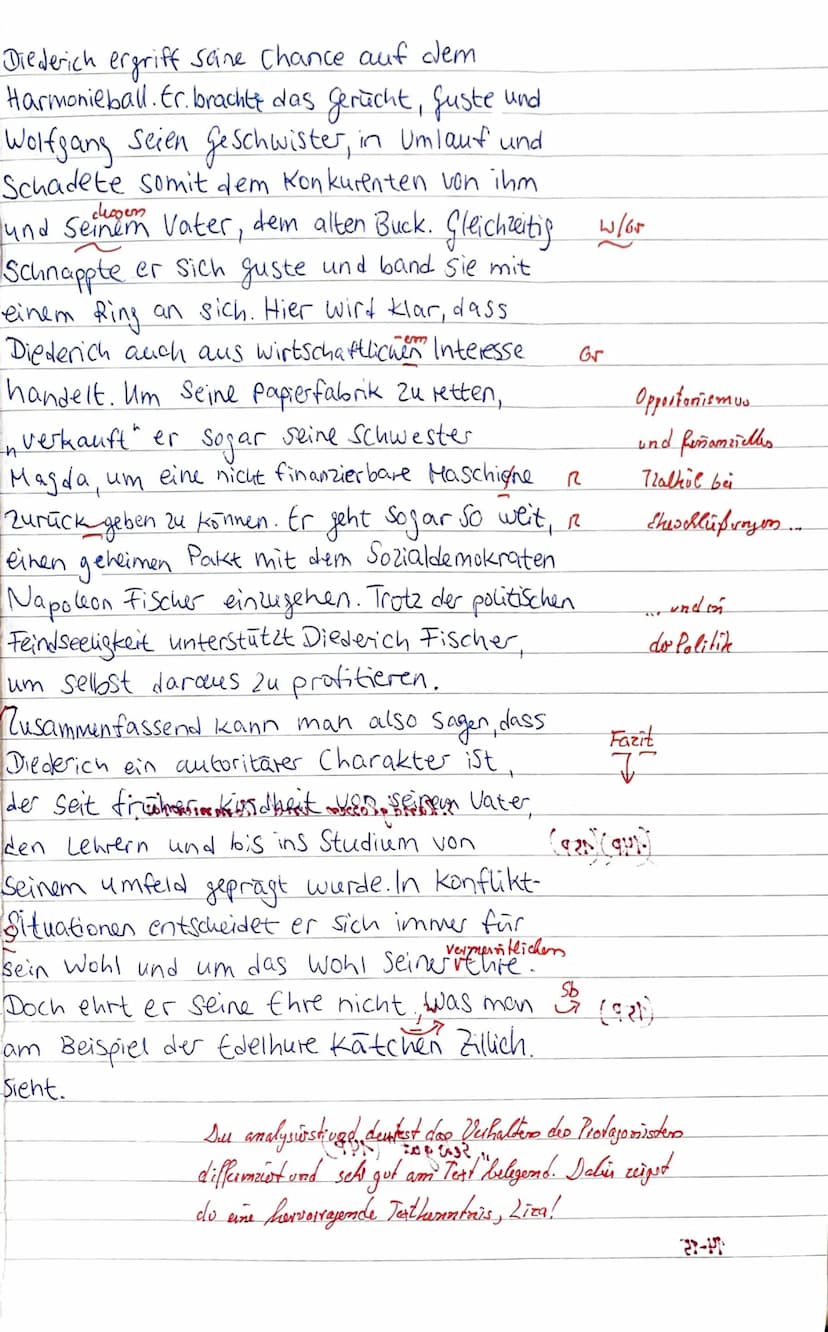 Diederich ergriff seine Chance auf dem
Harmonieball. Er brachte das Gerücht, Guste und
Wolfgang seien Geschwister, in Umlauf und
schadete somit dem Konkurenten von ihm
dessen
und seinem Vater, dem alten Buck. Gleichzeitig W/Gr
schnappte er sich Guste und band sie mit
einem Ring an sich. Hier wird klar, dass
Diederich auch aus wirtschaftlichen -em Interesse Gr
handelt. Um seine Papierfabrik zu retten, Opportonismus
„verkauft“ er sogar seine Schwester und finanzielles
Magda, um eine nicht finanzierbare Maschigne R Kalkül bei
zurück geben zu können. Er geht sogar so weit, R Eheschließungen...
einen geheimen Pakt mit dem Sozialdemokraten
Napoleon Fischer einzugehen. Trotz der politischen ... und in
Feindseeligkeit unterstützt Diederich Fischer, der Politik
um selbst daraus zu profitieren.
Zusammenfassend kann man also sagen, dass Fazit
Diederich ein autoritärer Charakter ist,
der seit früher Kindheit von seinem Vater,
den Lehrern und bis ins Studium von
seinem Umfeld geprägt wurde. In Konflikt-
Situationen entscheidet er sich immer für
vermeintlichen
sein Wohl und um das Wohl seiner Ehre.
Doch ehrt er seine Ehre nicht, was man Sb
am Beispiel der Edelhure Kätchen Zillich.
sieht.
Du analysierst und deutest das Verhalten des Protagonisten
differenziert und sehr gut am Text belegend. Dabei zeigst
du eine hervorragende Textkenntnis, Liza!